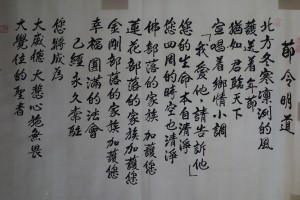 節令明道
北方冬寒凜冽的風
護送着年節
猶如君臨天下
宣唱着鄉情小調
「我愛他,請告訴他」
您的生命本自清淨
您四周的時空也清淨
佛部落的家族加護您
蓮花部落的家族加護您
金剛部落的家族加護您
幸福圓滿的法會
已經永久常駐
您將成為
大威德大慈心施無畏
大覺位的聖者